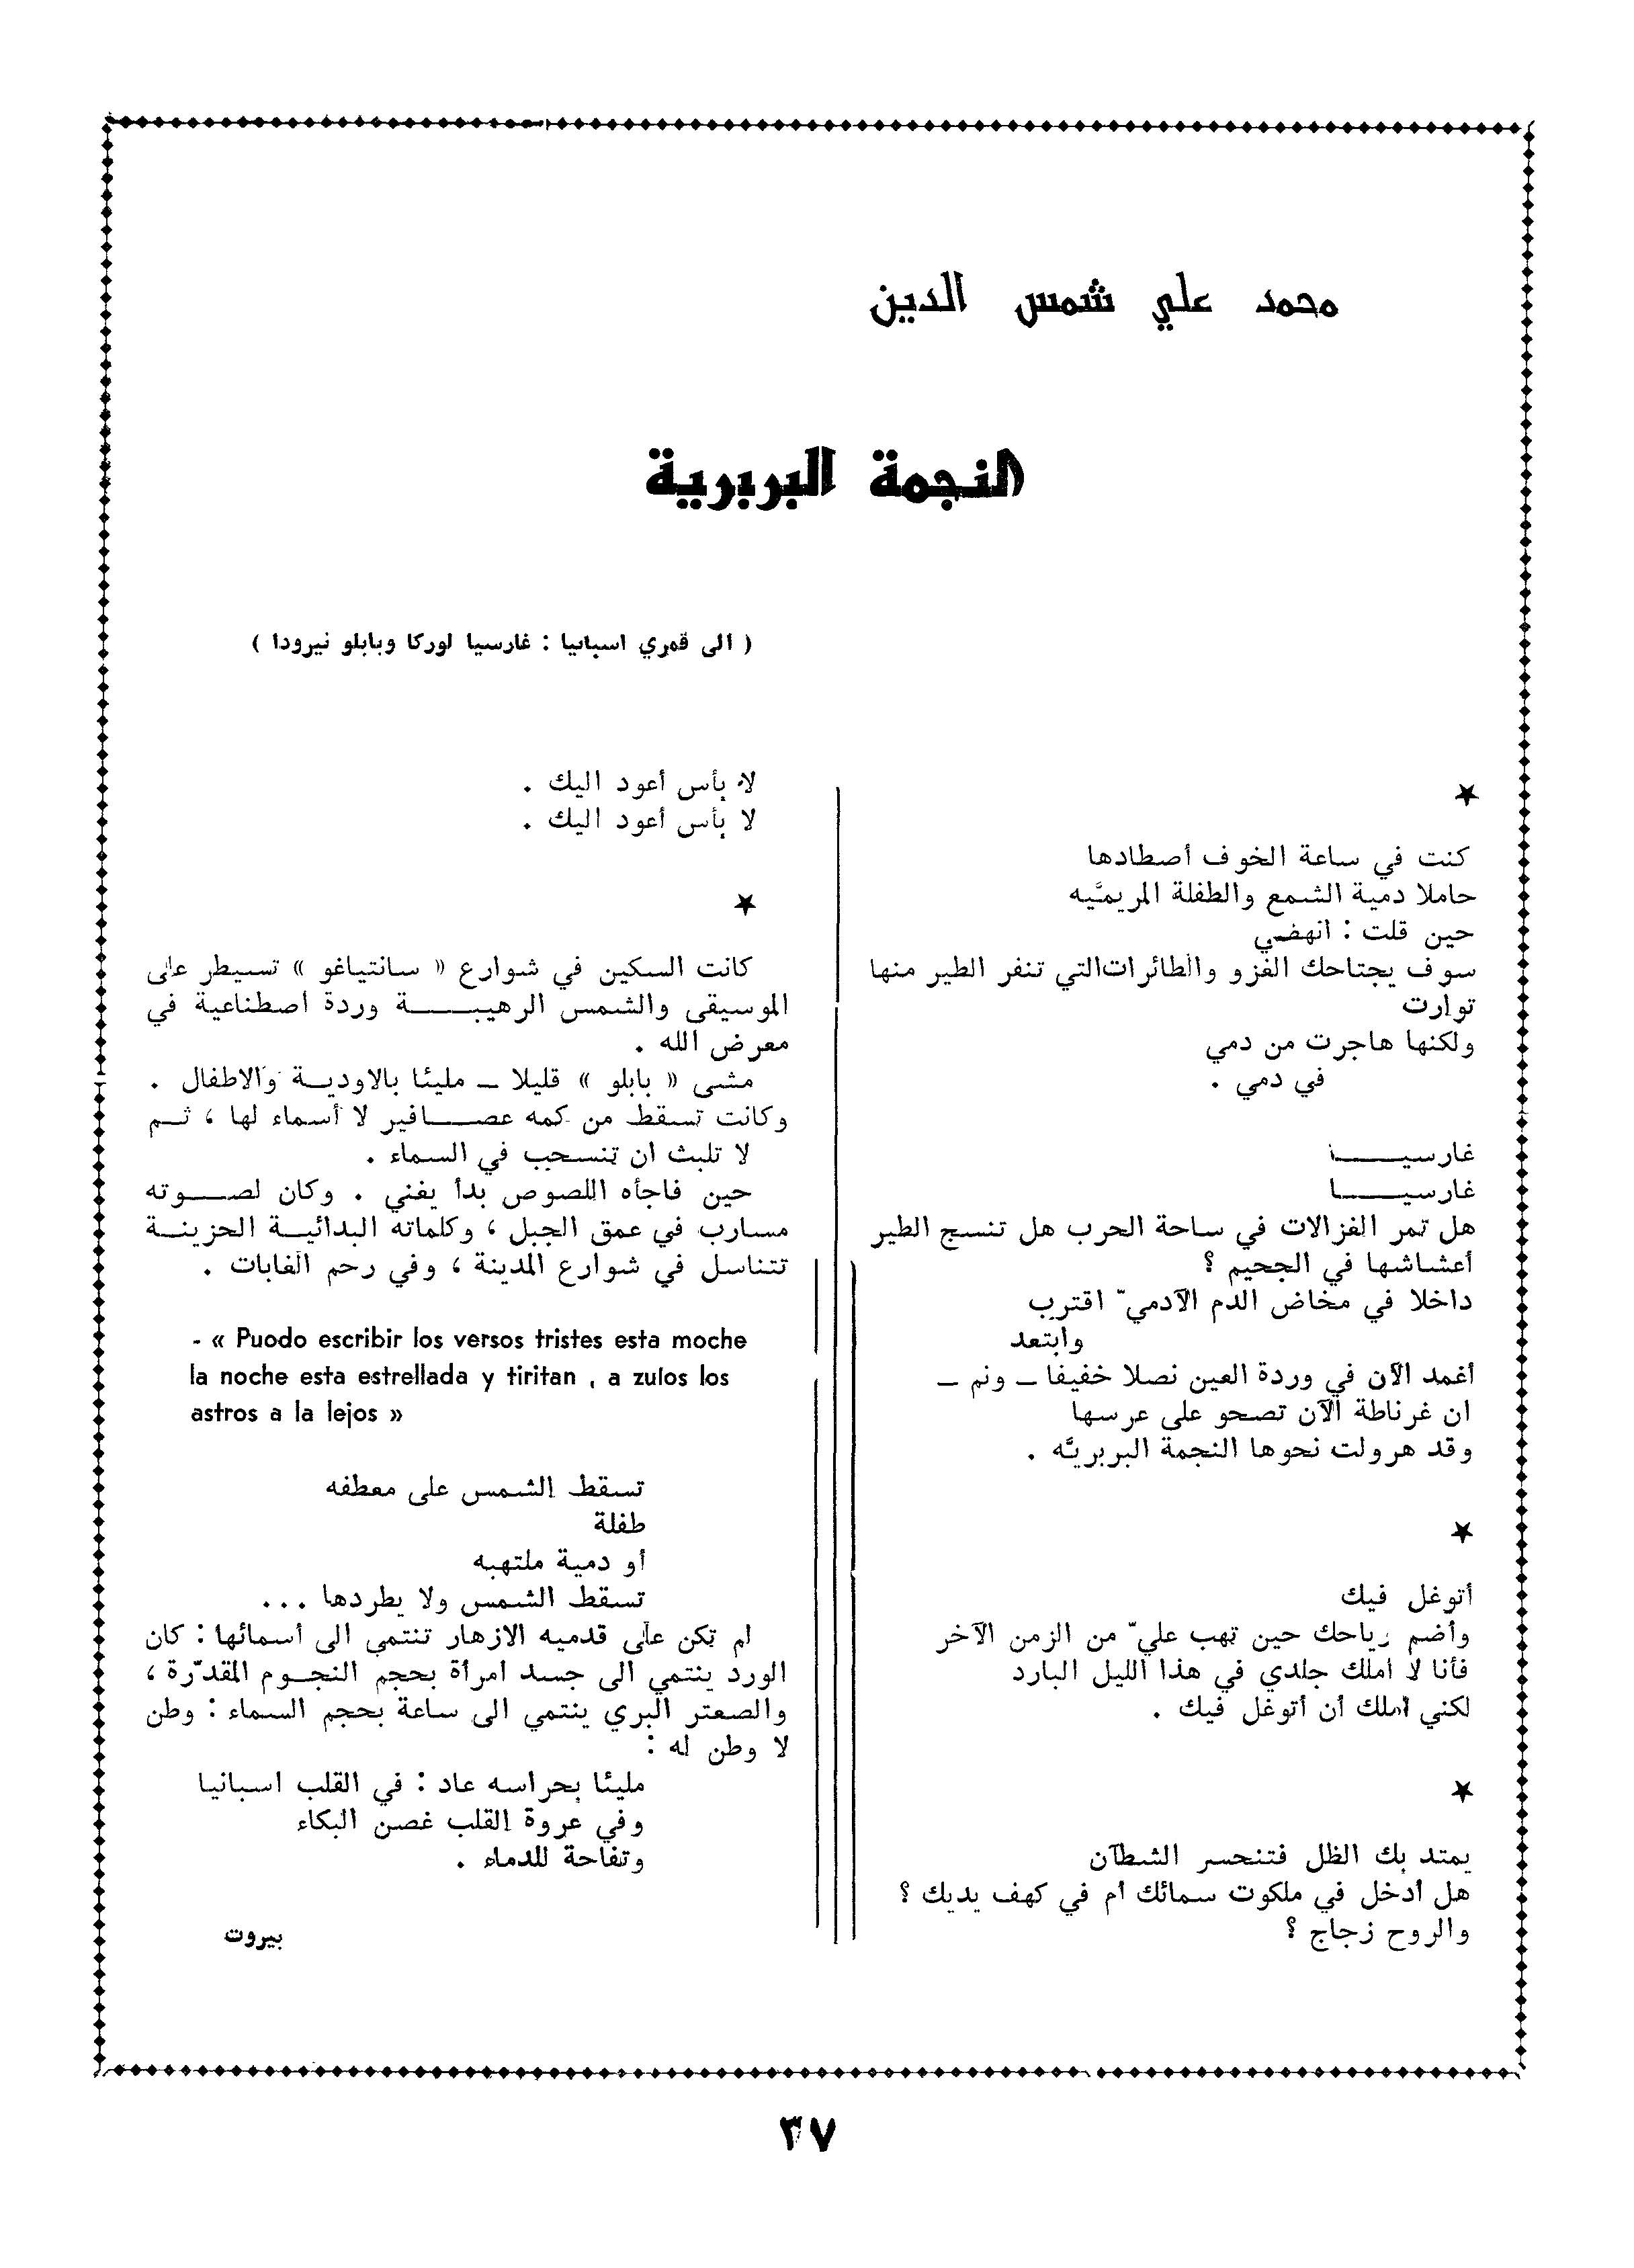 محمد علي شمس الدين
النجمة البربرية
( الى قمري اسبانيا : غارسيا لوركا وبابلو نيرودا )
★
كنت في ساعة الخوف أصطادها
حاملا دمية الشمع والطفلة المريميَّه
حين قلت : انهضي
سوف يجتاحك الغزو والطائرات التي تنفر الطير منها
توارت
ولكنها هاجرت من دمي
في دمي .
غارسيــــا
غارسيــــا
هل تمر الغزالات في ساحة الحرب هل تنسج الطير
أعشاشها في الجحيم ؟
داخلا في مخاض الدم الآدميّ اقترب
وابتعد
أغمد الآن في وردة العين نصلا خفيفا ـ ونم ـ
ان غرناطة الآن تصحو على عرسها
وقد هرولت نحوها النجمة البربريَّه .
★
أتوغل فيك
وأضم رياحك حين تهب عليّ من الزمن الآخر
فأنا لا املك جلدي في هذا الليل البارد
لكني أملك أن أتوغل فيك .
★
يمتد بك الظل فتنحسر الشطآن
هل أدخل في ملكوت سمائك أم في كهف يديك ؟
والروح زجاج ؟
لا بأس أعود اليك .
لا بأس أعود اليك .
★
كانت السكين في شوارع « سانتياغو » تسيطر على
الموسيقى والشمس الرهيبــــة وردة اصطناعية في
معرض الله .
مشى « بابلو » قليلا ـ مليئا بالاوديــة والاطفال .
وكانت تسقط من كمه عصــــافير لا أسماء لها ، ثــم
لا تلبث ان تنسحب في السماء .
حين فاجأه اللصوص بدأ يغني . وكان لصــــوته
مسارب في عمق الجبل ، وكلماته البدائيــة الحزينــة
تتناسل في شوارع المدينة ، وفي رحم الغابات .
- « Puodo escribir los versos tristes esta moche
la noche esta estrellada y tiritan , a zulos los
astros a la lejos »
تسقط الشمس على معطفه
طفلة
أو دمية ملتهبه
تسقط الشمس ولا يطردها ...
لم تكن على قدميه الازهار تنتمي الى أسمائها : كان
الورد ينتمي الى جسد امرأة بحجم النجــوم المقدّرة ،
والصعتر البري ينتمي الى ساعة بحجم السماء : وطن
لا وطن له :
مليئا بحراسه عاد : في القلب اسبانيا
وفي عروة القلب غصن البكاء
وتفاحة للدماء .
بيروت
٣٧